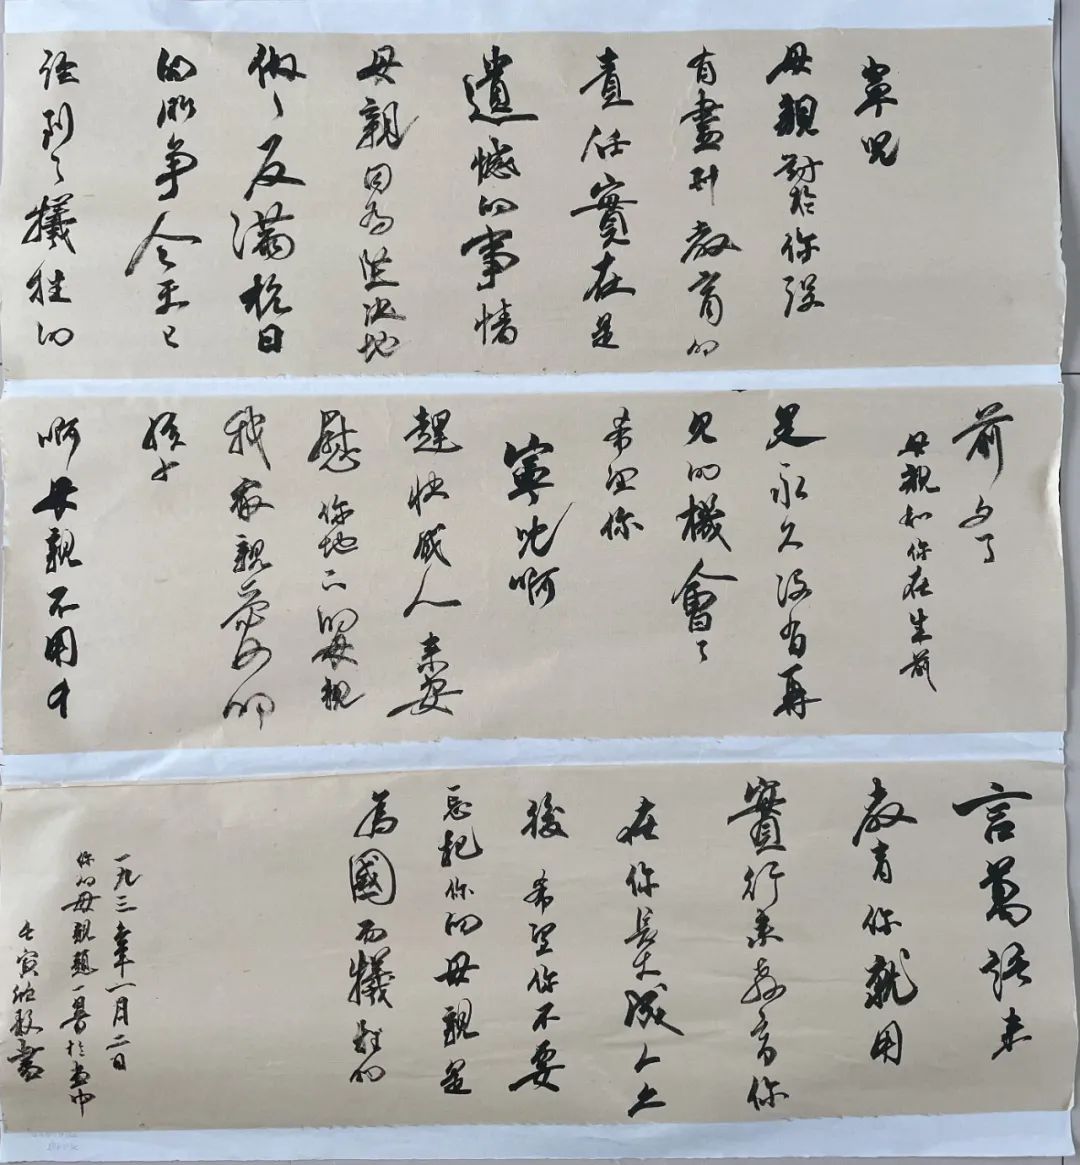 寧兒
母親對於你沒
有盡到教育的
責任實在是
遺憾的事情
母親因為堅決地
做了反滿抗日
的鬥爭今天已
經到了犧牲的
前夕了
母親和你在生前
是永久沒有再
見的機會了
希望你
寧兒啊
趕快成人來安
慰你地下的母親
我最親愛的
孩子
啊母親不用千
言萬語來
教育你就用
實行來教育你
在你長大成人之
後希望你不要
忘記你的母親是
為國而犧牲的
一九三六年八月二日
你的母親趙一曼於車中
壬寅書